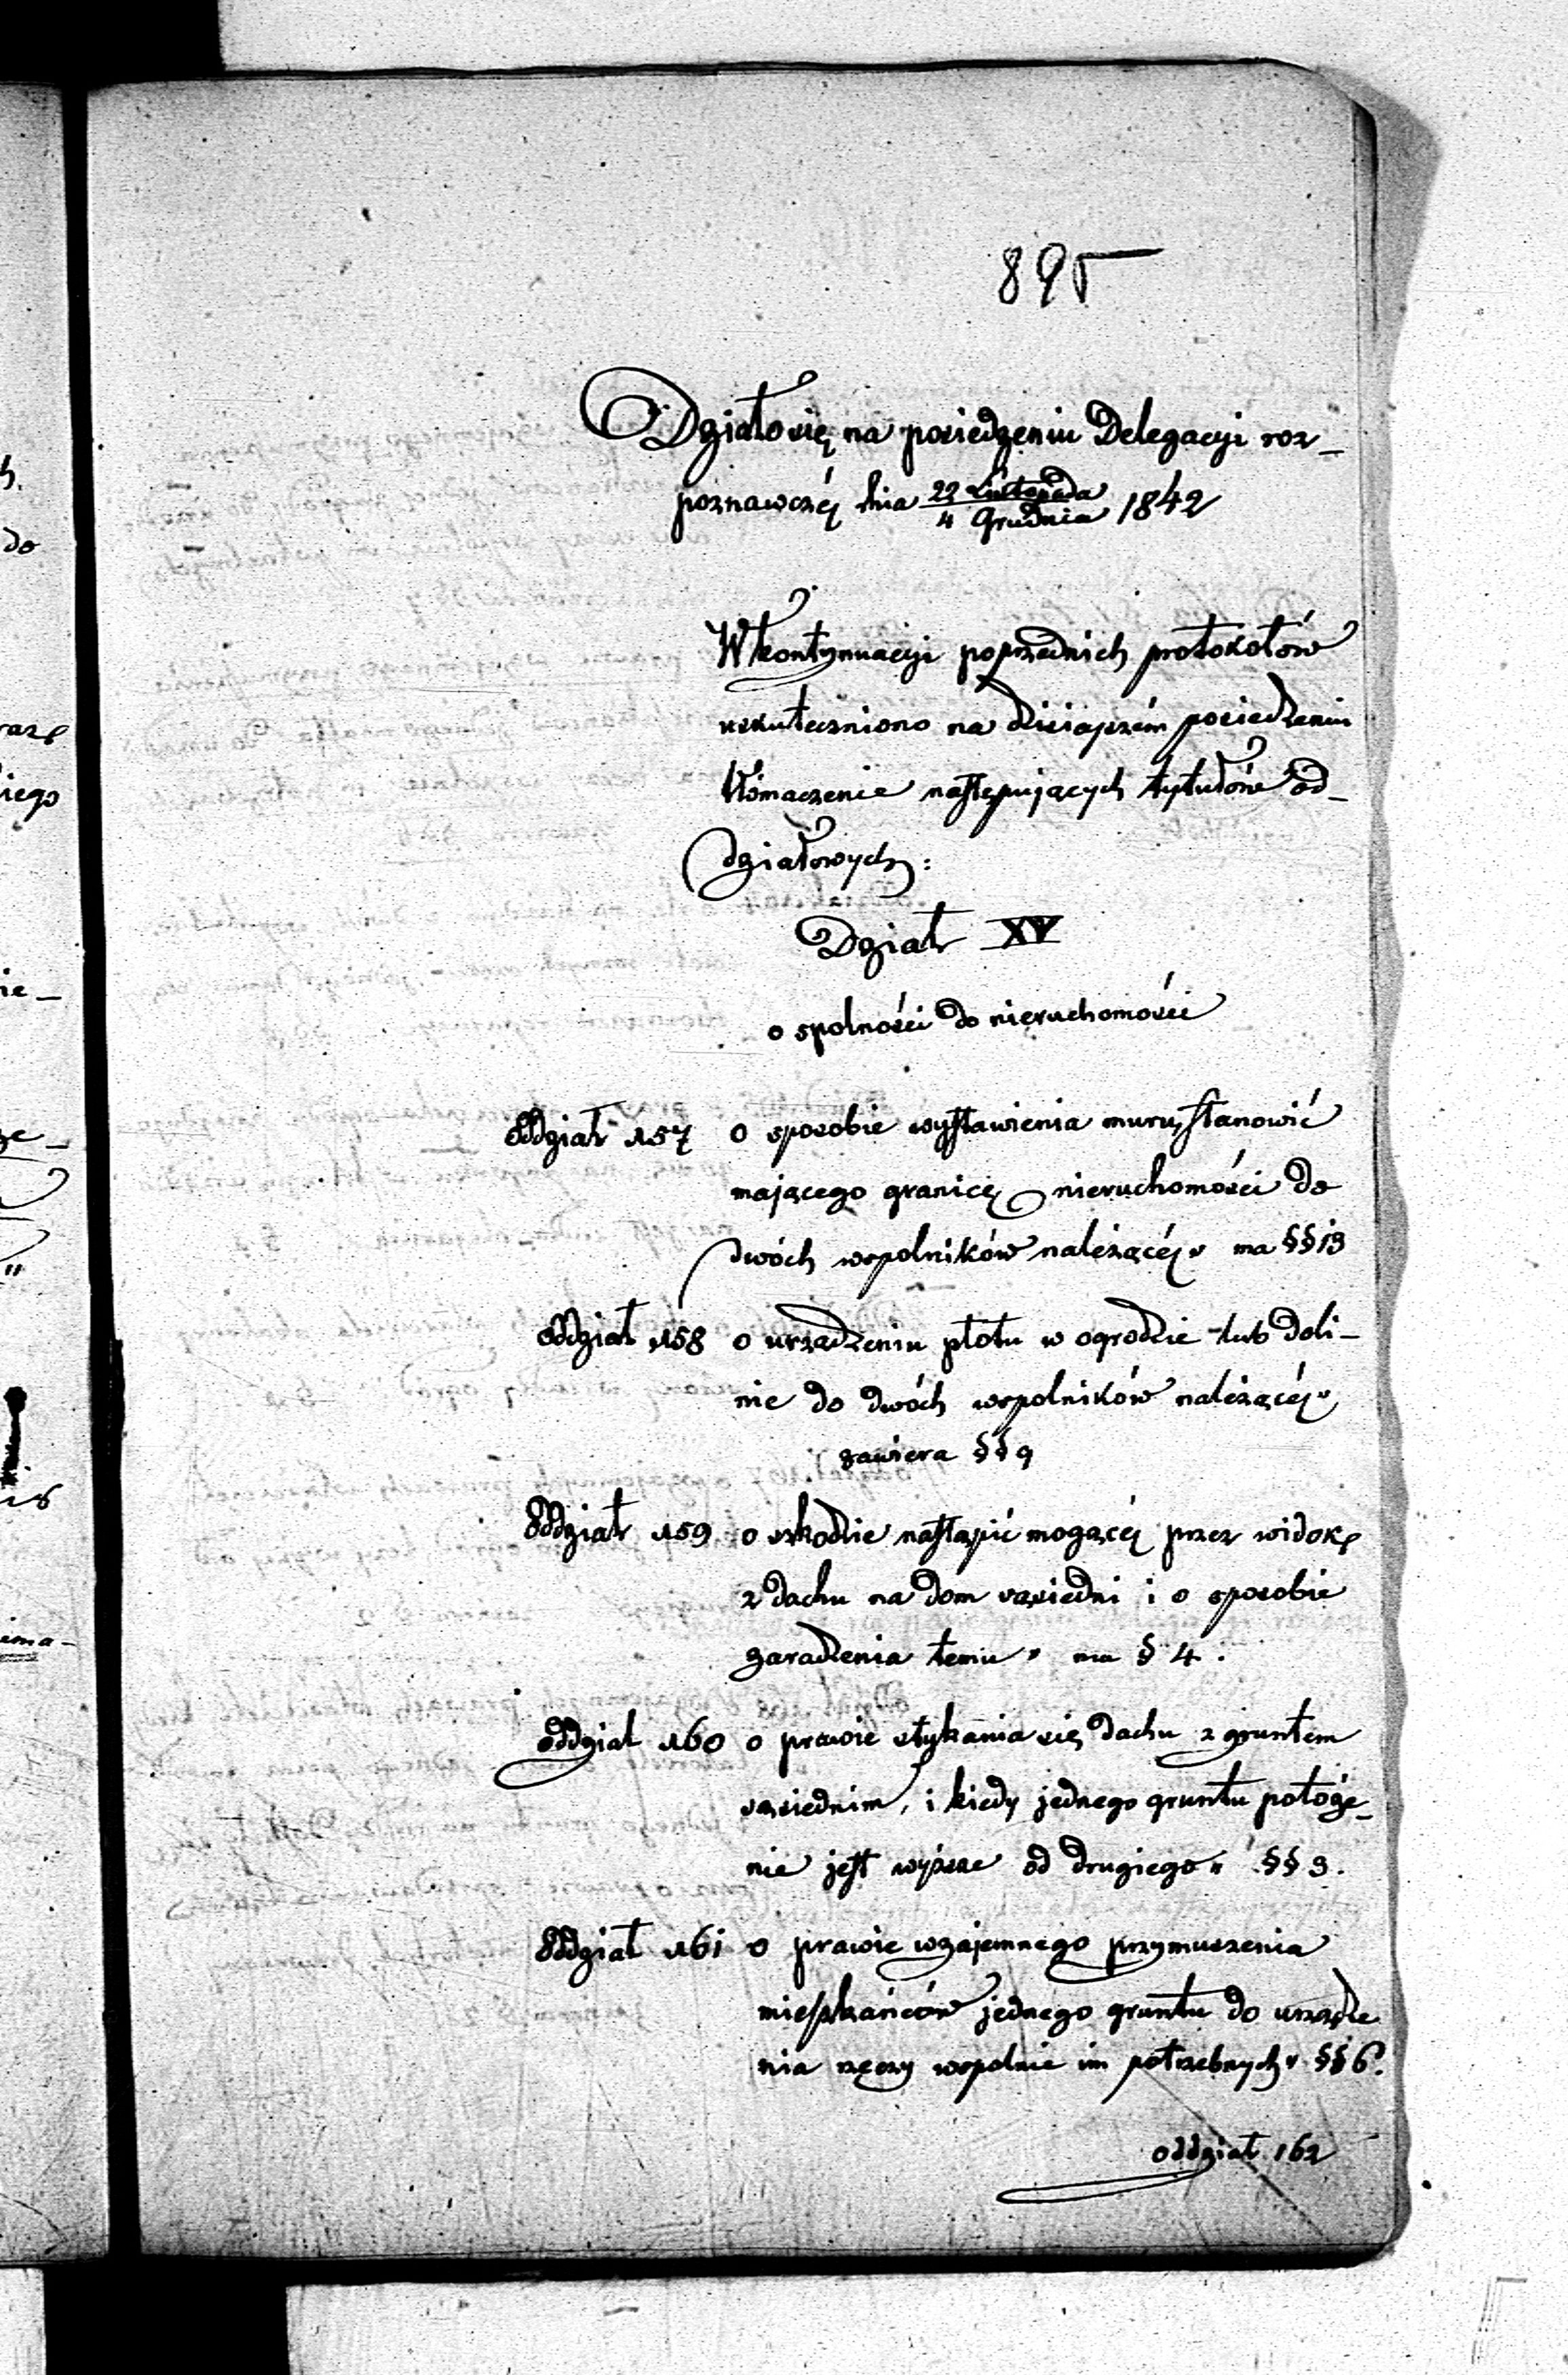 895
Działo się na posiedzeniu Delegacyi roz_
poznawczéj dnia 22 Listopada / 4 Grudnia 1842
W kontynuacyi poprzednich protokołów
uskuteczniono na dzisiajszém posiedzeniu
tłómaczenie następujących tytułów od_
działowych:
Dział XV
o spolności do nieruchomości
Oddział 157 o sposobie wystawienia muru, stanowić
mającego granicę nieruchomości do
dwóch wspolników należącéj" ma §§ 13
Oddział 158 o urządzeniu płotu w ogrodzie lub doli_
nie do dwóch wspolników należącéj"
zawiera §§ 9
Oddział 159 o szkodzie nastąpić mogącéj przez widok
z dachu na dom sąsiedni i o sposobie
zaradzenia temu" ma § 4.
Oddział 160 o prawie stykania się dachu z gruntem
sąsiednim, i kiedy jednego gruntu położe_
nie jest wyższe od drugiego" §§ 3.
Oddział 161 o prawie wzajemnego przymuszenia
mieszkańców jednego gruntu do urządze
nia rzęczy wspolnie im potrzebnych" §§ 6.
oddział 162